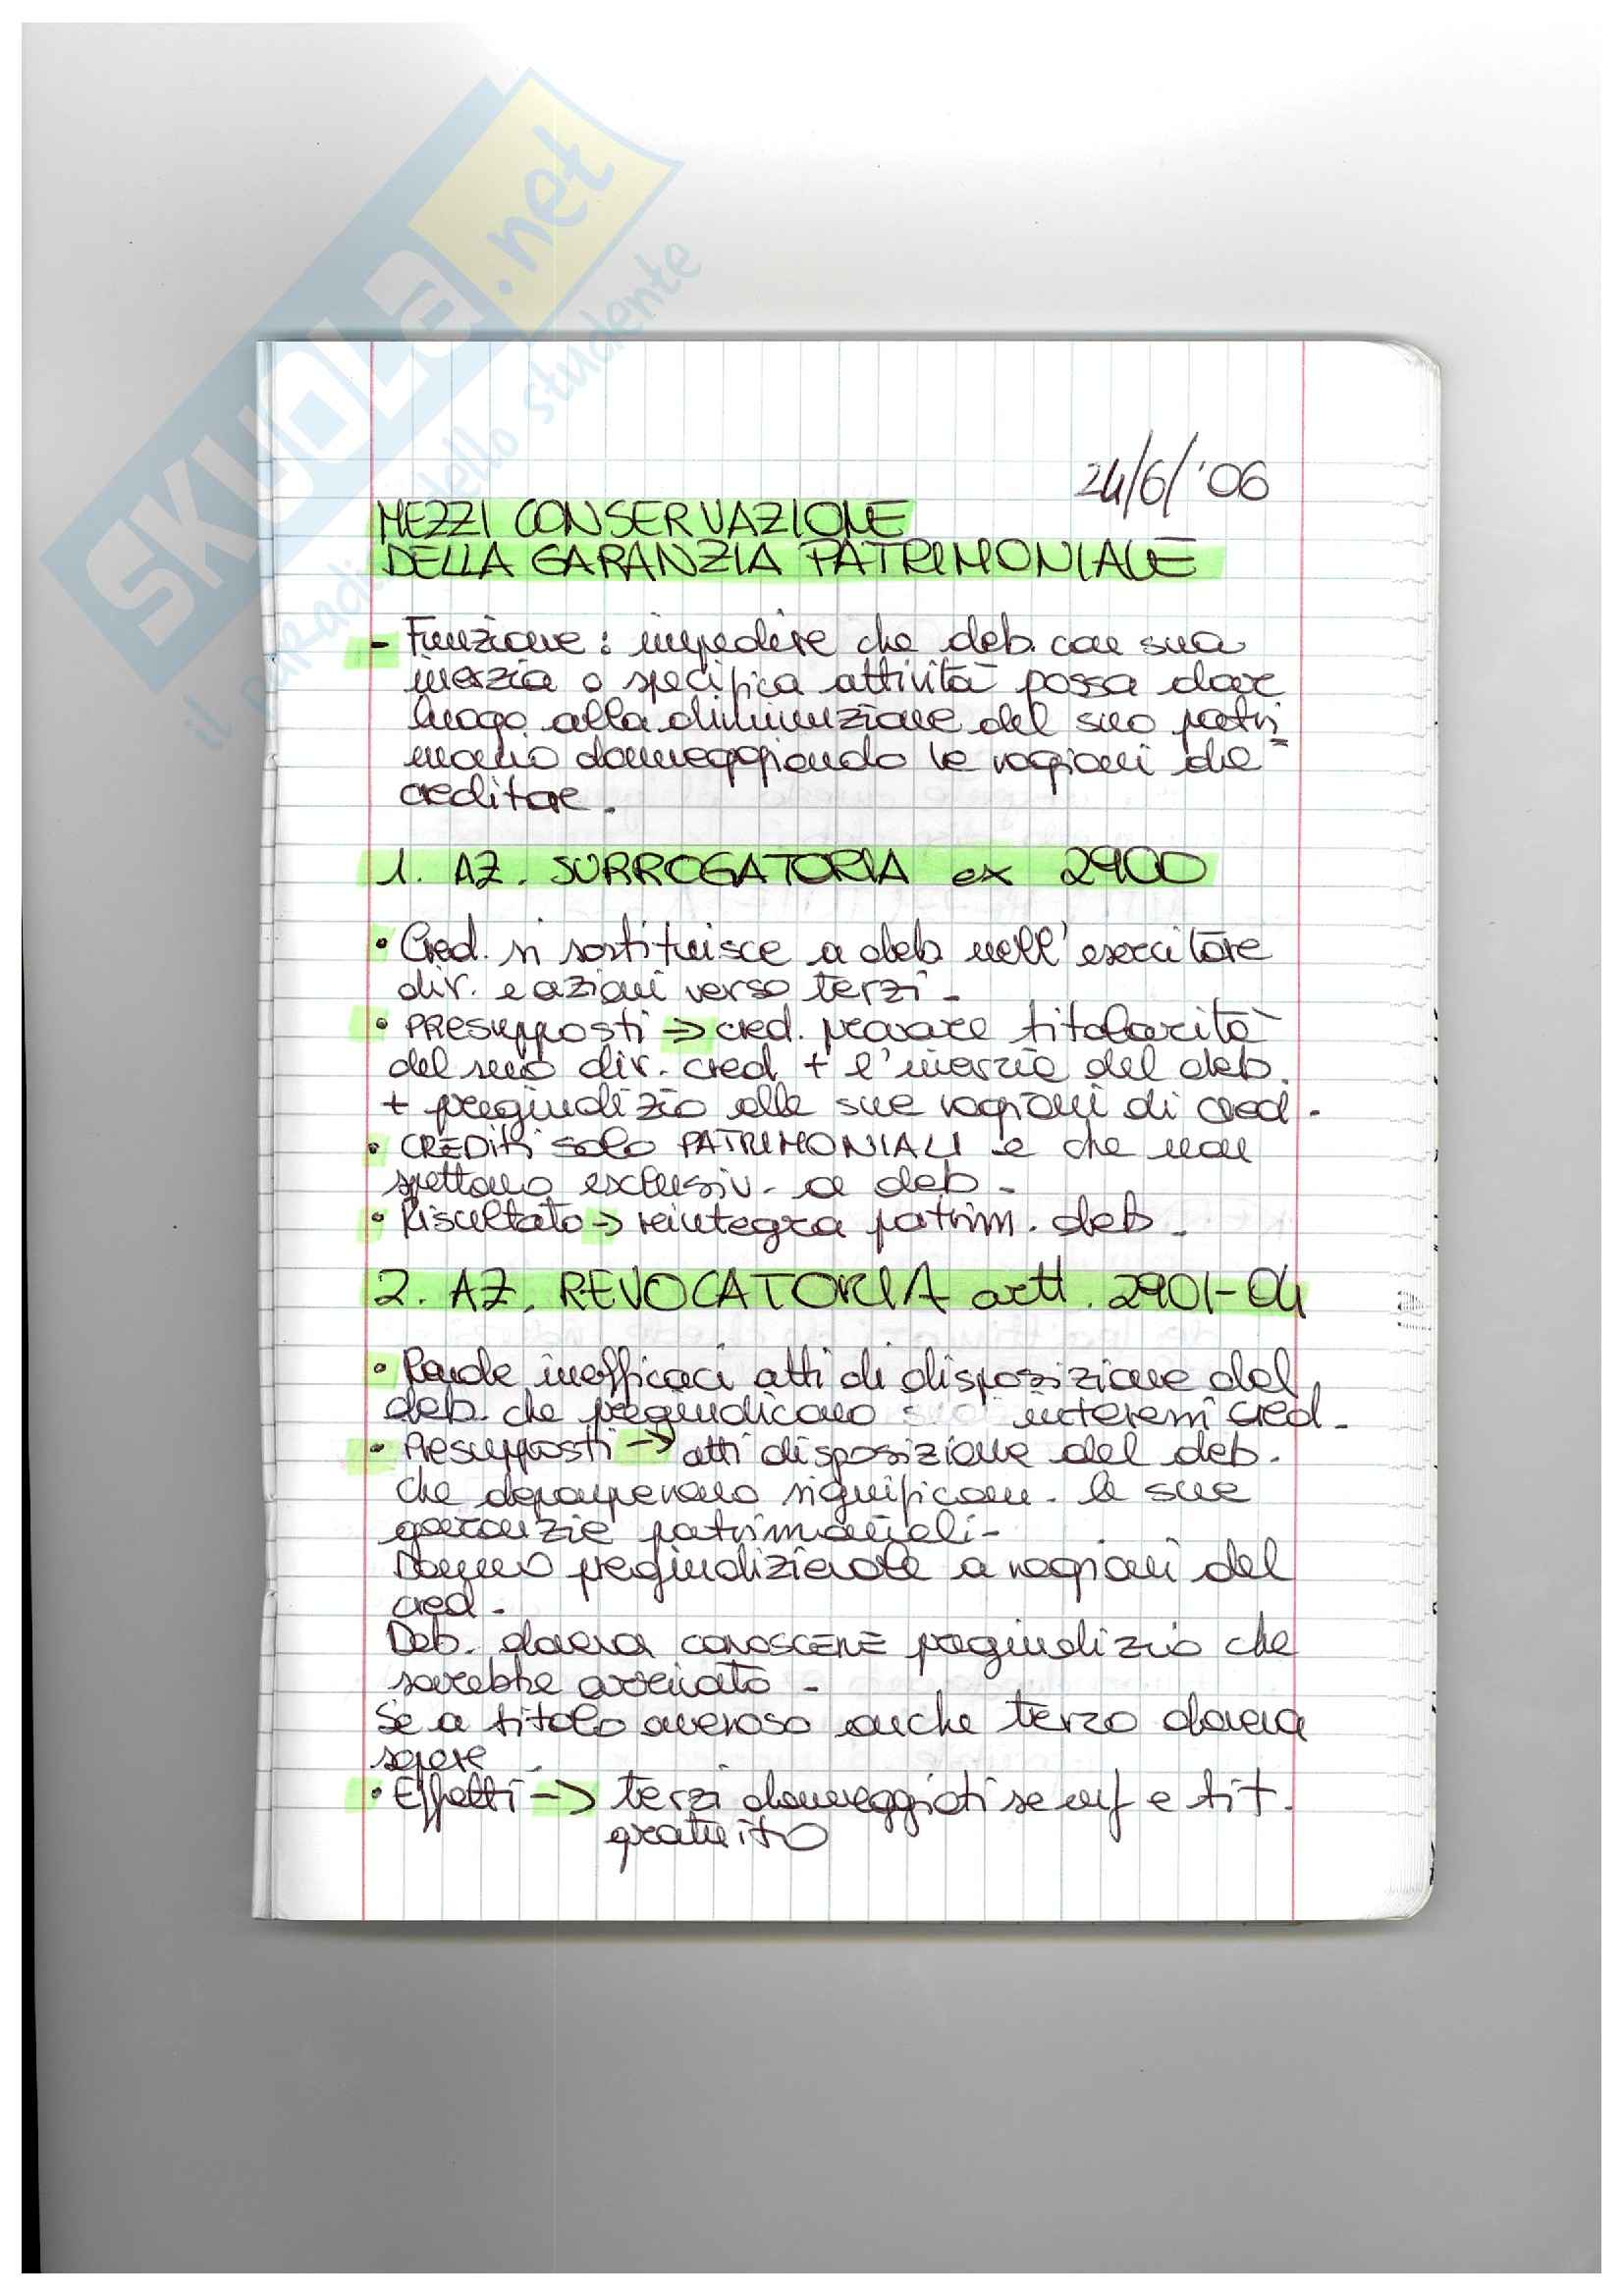 SKUOLA.net
il paradiso dello studente
24/6/'06
MEZZI CONSERVAZIONE
DELLA GARANZIA PATRIMONIALE
- Funzione: impedire che deb. con sua
inerzia o specifica attività possa dare
luogo alla diminuzione del suo patri=
monio danneggiando le ragioni del
creditore.
1. AZ. SURROGATORIA ex 2900
• Cred. si sostituisce a deb. nell'esercitare
dir. e azioni verso terzi -
• PRESUPPOSTI => cred. provare titolarità
del suo dir. cred + l'inerzia del deb.
+ pregiudizio alle sue ragioni di cred.
• CREDITI SOLO PATRIMONIALI e che non
spettano exclusiv. a deb -
• Risultato -> reintegra patrim. deb.
2. AZ. REVOCATORIA artt. 2901-04
• Rende inefficaci atti di disposizione del
deb. che pregiudicano interessi cred -
• Presupposti -> atti disposizione del deb.
che depauperano significam. le sue
garanzie patrimoniali -
Danno pregiudizievole a ragioni del
cred -
Deb. doveva CONOSCERE pregiudizio che
sarebbe arrivato -
Se a titolo oneroso anche terzo doveva
sapere
• Effetti -> terzi danneggiati se e tit.
gratuito